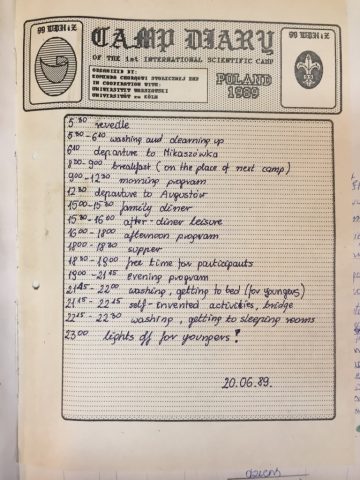 CAMP DIARY
OF THE 1st INTERNATIONAL SCIENTIFIC CAMP
ORGANIZED BY:
KOMENDA CHORĄGWI STOŁECZNEJ ZHP
IN COOPERATION WITH:
UNIWERSYTET WARSZAWSKI
UNIVERSITÄT zu KÖLN
POLAND
1989
5 30 reveille
5 30 - 6 10 washing and clearning up
6 10 departure to Mikaszówka
8 20 - 9 00 breakfast (on the place of next camp)
9 00 - 12 30 morning program
12 30 departure to Augustów
15 00 - 15 30 family diner
15 30 - 16 00 after-diner leisure
16 00 - 18 00 afternoon program
18 00 - 18 30 supper
18 30 - 19 00 free time for participants
19 00 - 21 15 evening program
21 45 - 22 00 washing, getting to bed (for youngers)
21 15 - 22 15 self-invented activities, bridge
22 15 - 22 30 washing, getting to sleeping rooms
23 00 lights off for youngers!
20.06.89.